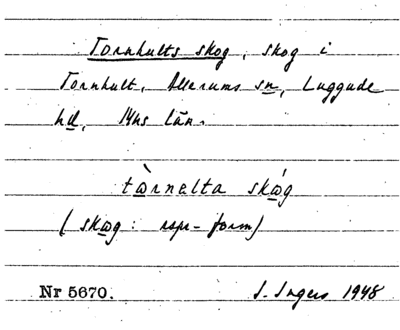 Tornhults skog, skog i
Tornhult, Allerums sn, Luggude
hd, Mhs län.
tò̱rnelta skó̱g
(sko̱g: rspr-form)
Nr 5670. I. Ingers 1948